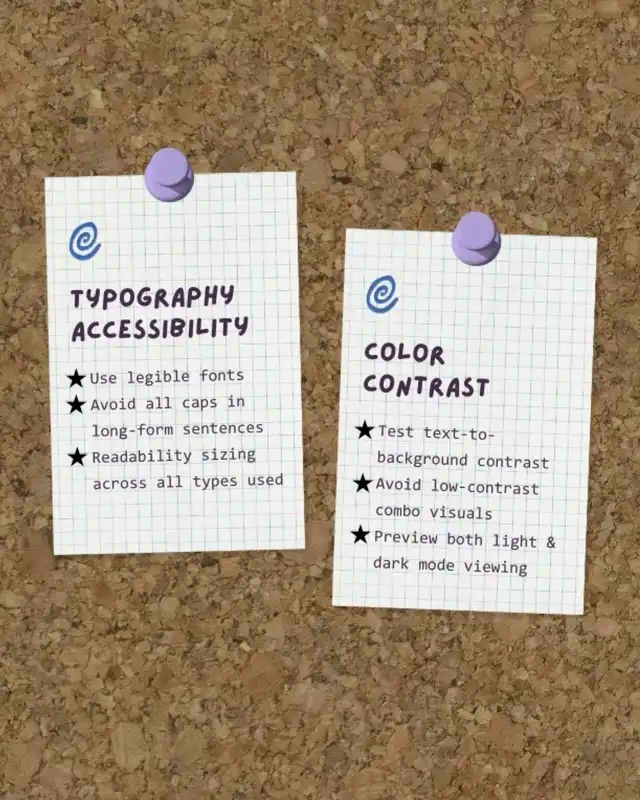 TYPOGRAPHY
ACCESSIBILITY
★ Use legible fonts
★ Avoid all caps in
long-form sentences
★ Readability sizing
across all types used
COLOR
CONTRAST
★ Test text-to-
background contrast
★ Avoid low-contrast
combo visuals
★ Preview both light &
dark mode viewing